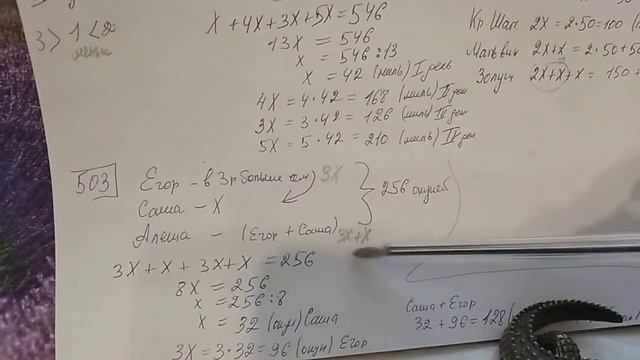 x + 4x + 3x + 5x = 546
13x = 546
x = 546 : 13
x = 42 (миль) I день
4x = 4 · 42 = 168 (миль) II ден
3x = 3 · 42 = 126 (миль) III ден
5x = 5 · 42 = 210 (миль) IV ден
3) 1 < 2
Кр. Шап. 2x = 2 · 50 = 100
Мальвин 2x + x = 2 · 50 + 50
Золуш 2x + x + x = 150 +
503
Егор – в 3 р больше чем) 3x
Саша – x
Алеша – (Егор + Саша) 3x + x
256 окуней
3x + x + 3x + x = 256
8x = 256
x = 256 : 8
x = 32 (окун) Саша
3x = 3 · 32 = 96 (окун) Егор
Саша + Егор
32 + 96 = 128